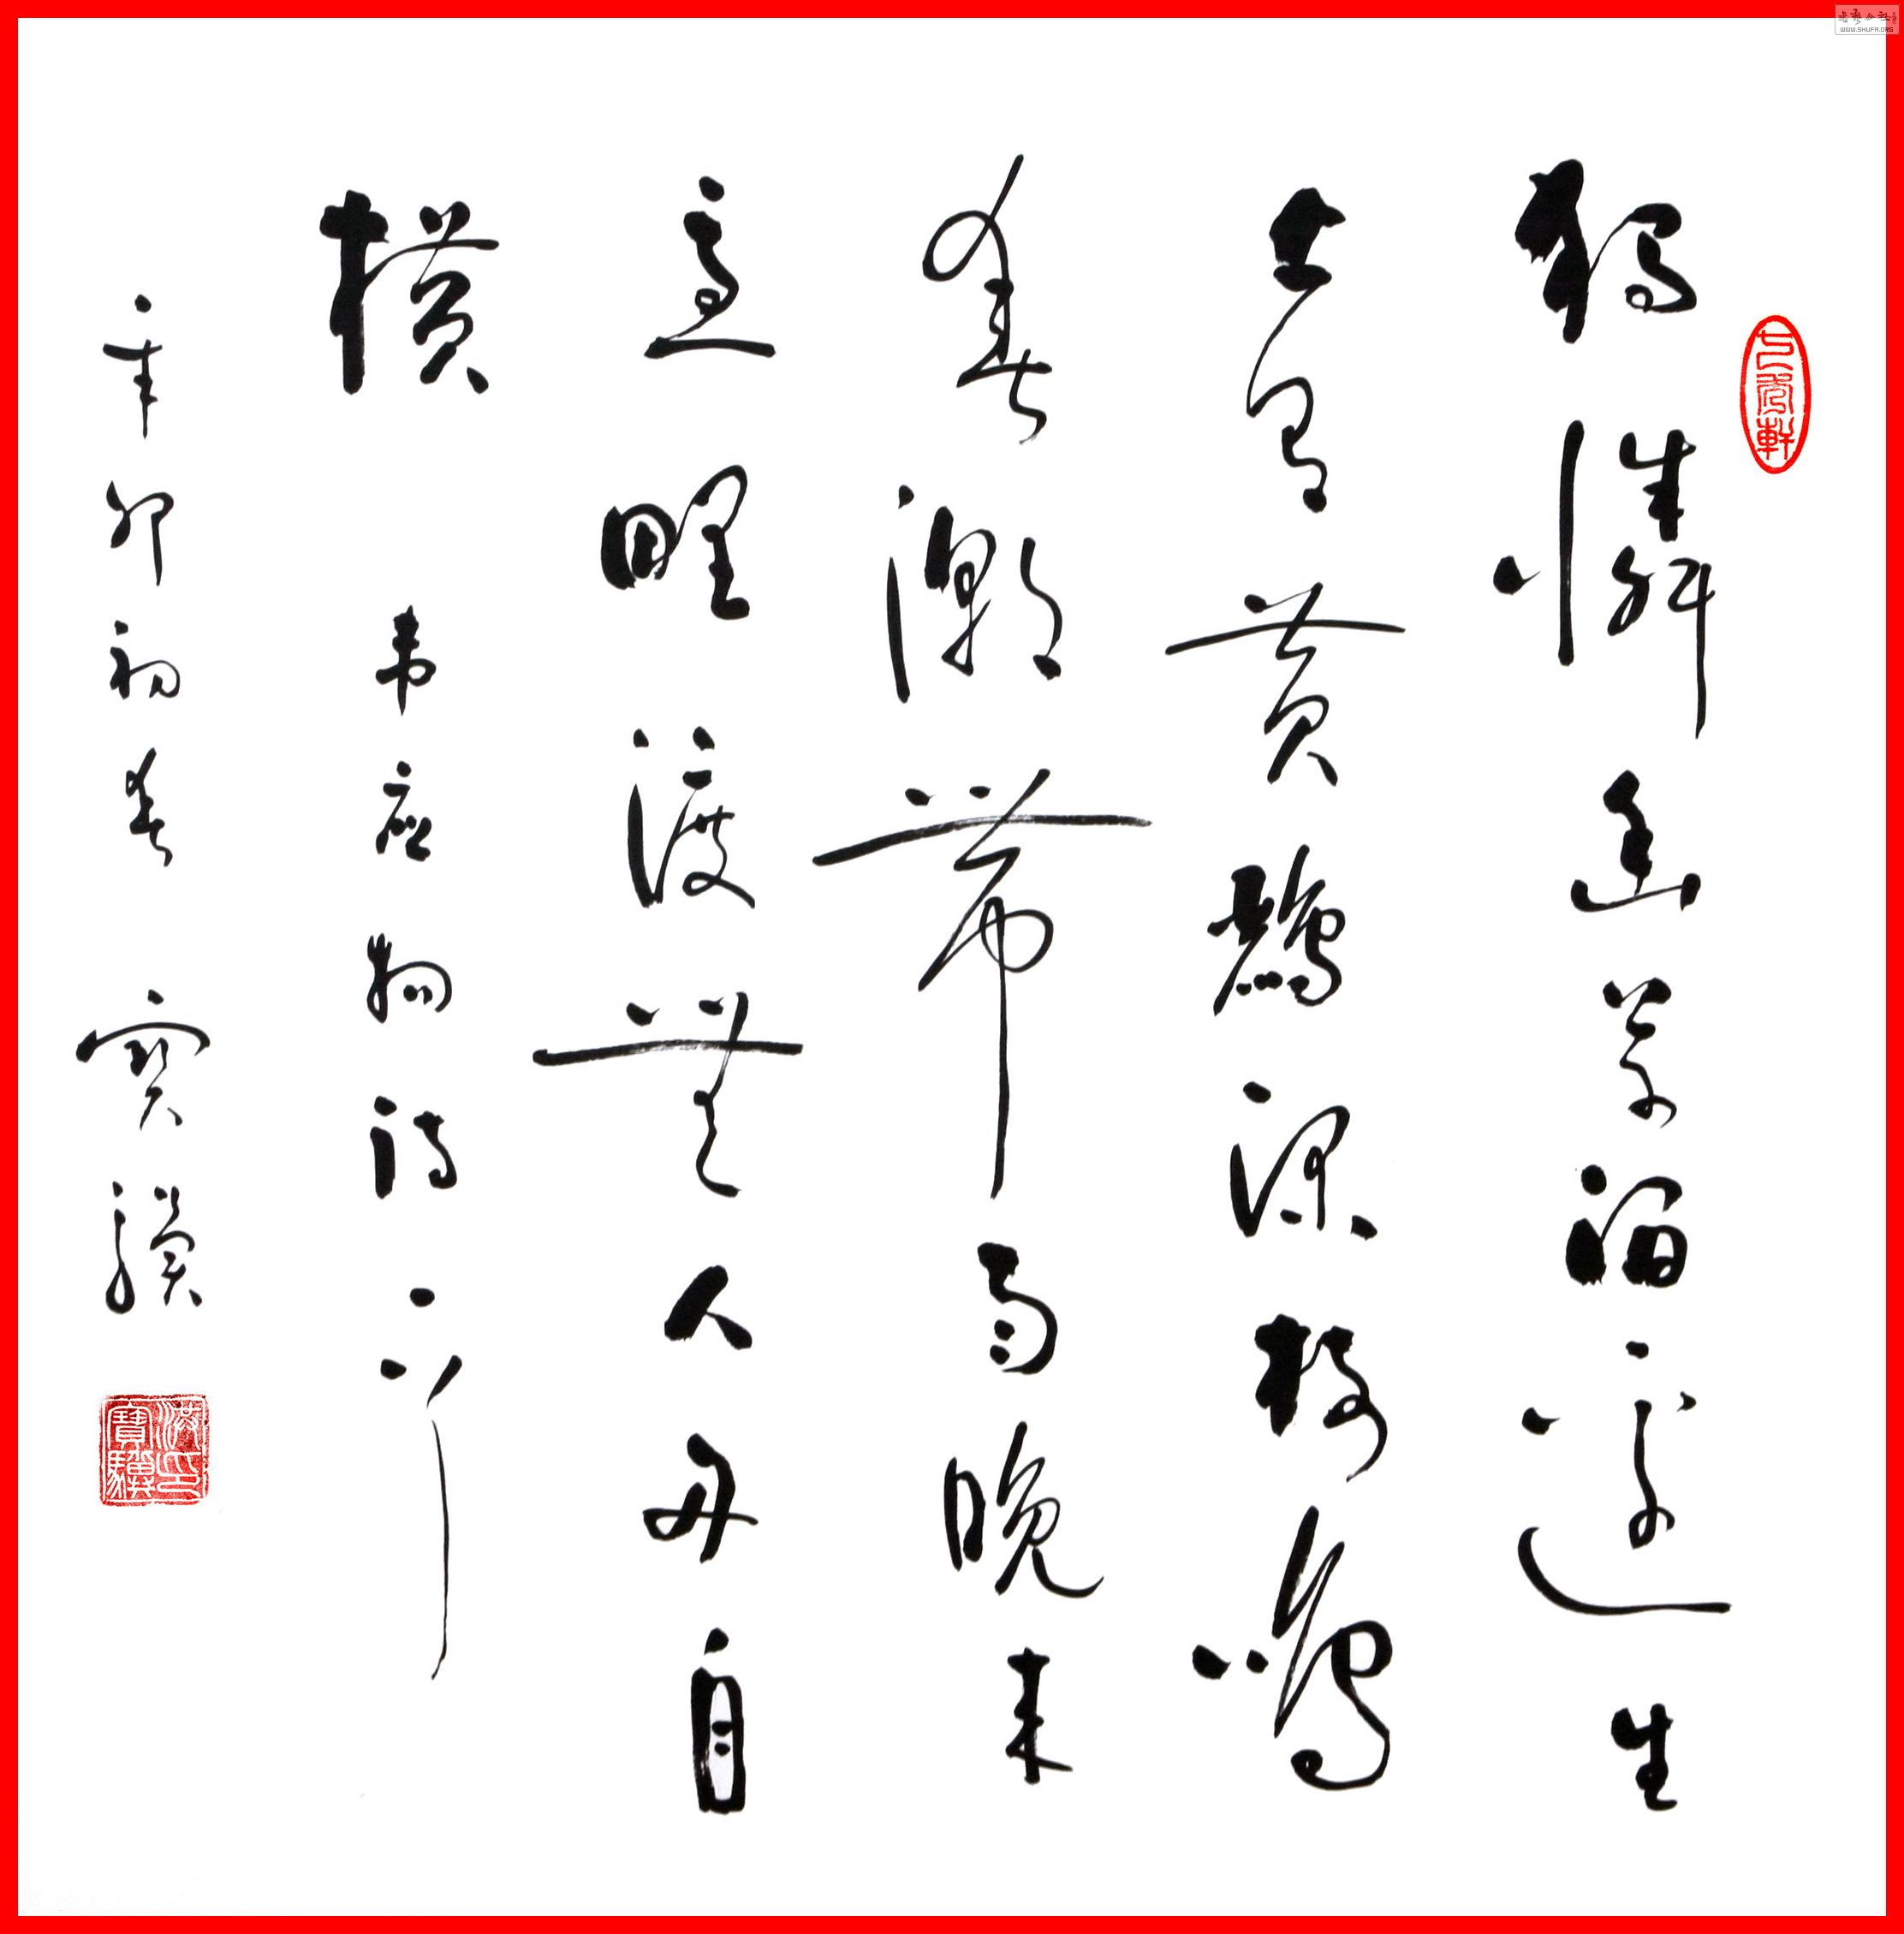 獨憐幽草澗邊生
上有黃鸝深樹鳴
春潮帶雨晚來
急野渡無人舟自
橫
韋應物詩
辛卯初春 寶驥
寶驥
軒
WWW.SHUFA.ORG